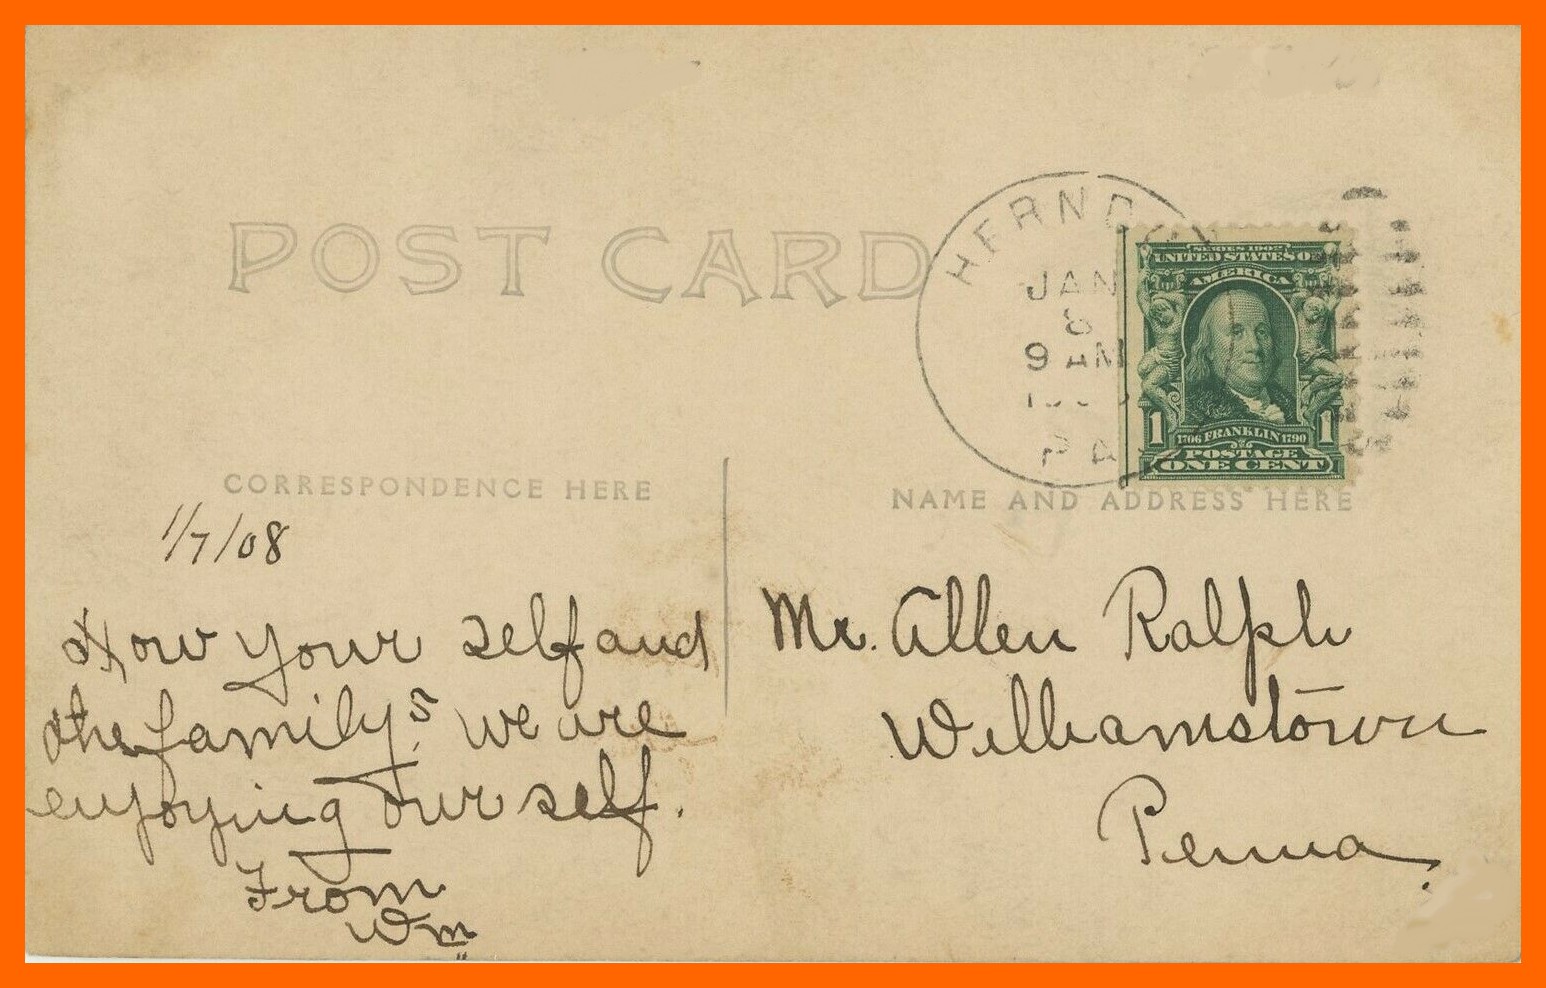 POST CARD
HERNDON
JAN
8
9 AM
PA
SERIES 1902
UNITED STATES OF
AMERICA
1
1706 FRANKLIN 1790
1
POSTAGE
ONE CENT
CORRESPONDENCE HERE
NAME AND ADDRESS HERE
1/7/08
How your self and
the familys. we are
enjoying our self.
From
Wm
Mr. Allen Ralph
Williamstown
Penna.